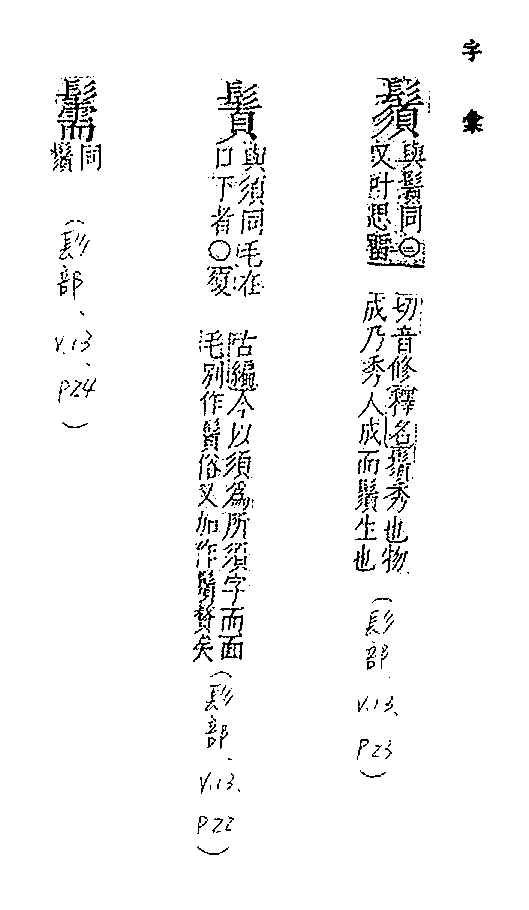 字彙
鬚
與同〇
又叶思留
切音修釋名鬚秀也物
成乃秀人成而鬚生也
(髟部、V.13、P23)
與須同毛在
口下者〇
古編今以須為所須字而面
毛別作俗又加作贅矣
(髟部、V.13、P22)
同
鬚
(髟部、V.13、P24)